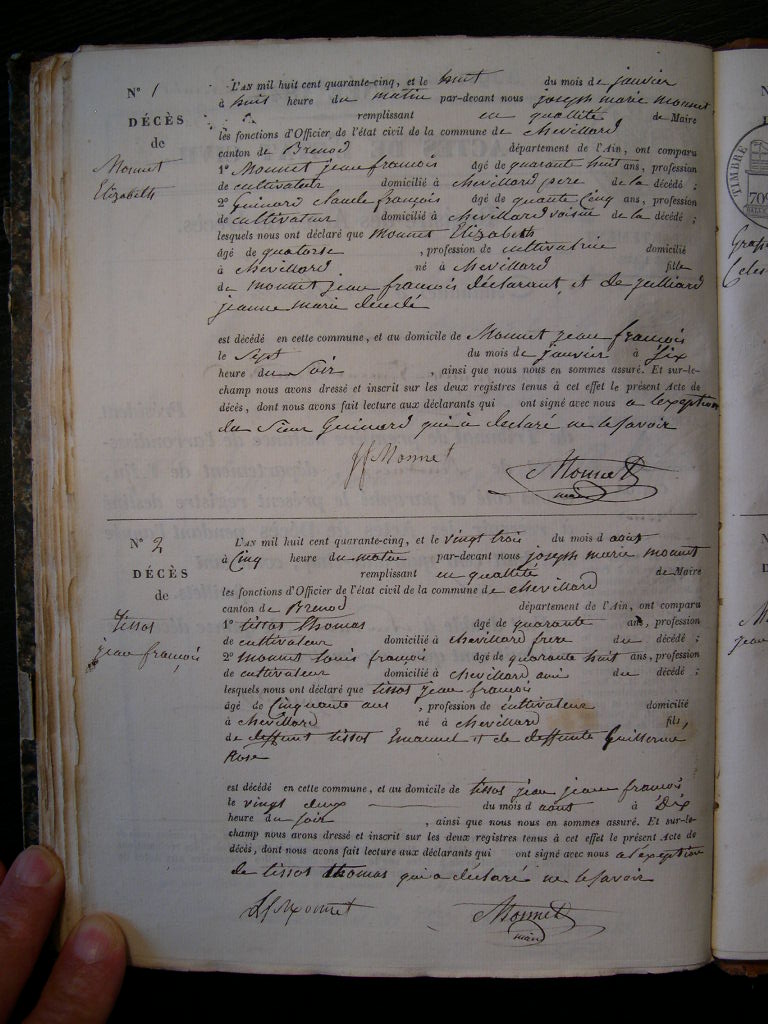 N° 1
DÉCÈS
de
Monnet
Elizabeth
L'AN mil huit cent quarante-cinq, et le huit du mois de janvier
à huit heure du matin par-devant nous joseph marie monnet
remplissant en quallité de Maire
les fonctions d'Officier de l'état civil de la commune de chevillard
canton de Brenod département de l'Ain, ont comparu
1° Monnet jean françois âgé de quarante huit ans, profession
de cultivateur domicilié à chevillard pere de la décédé ;
2° Guinard claude françois âgé de quante cinq ans, profession
de cultivateur domicilié à chevillard voisin de la décédé ;
lesquels nous ont déclaré que monnet Elizabeth
âgé de quatorse , profession de cultivatrice domicilié
à chevillard né à chevillard fille
de monnet jean françois déclarant et de julliard
jeanne marie
est décédé en cette commune, et au domicile de Monnet jean françois
le sept du mois de janvier à six
heure du soir , ainsi que nous nous en sommes assuré. Et sur-le-
champ nous avons dressé et inscrit sur les deux registres tenus à cet effet le présent Acte de
décès, dont nous avons fait lecture aux déclarants qui ont signé avec nous a l'exception
du sieur Guinard qui a déclaré ne le savoir
jf Monnet
Monnet
maire
N° 2
DÉCÈS
de
tissot
jean françois
L'AN mil huit cent quarante-cinq, et le vingt trois du mois d aout
à cinq heure du matin par-devant nous joseph marie monnet
remplissant en quallité de Maire
les fonctions d'Officier de l'état civil de la commune de chevillard
canton de Brenod département de l'Ain, ont comparu
1° tissot thomas âgé de quarante ans, profession
de cultivateur domicilié à chevillard frere du décédé ;
2° monnet louis françois âgé de quarante huit ans, profession
de cultivateur domicilié à chevillard ami du décédé ;
lesquels nous ont déclaré que tissot jean françois
âgé de cinquante ans , profession de cultivateur domicilié
à chevillard né à chevillard fils,
de deffunt tissot Emanuel et de deffunte Guillerme
Rose
est décédé en cette commune, et au domicile de tissot jean jean françois
le vingt deux du mois d aout à dix
heure du soir , ainsi que nous nous en sommes assuré. Et sur-le-
champ nous avons dressé et inscrit sur les deux registres tenus à cet effet le présent Acte de
décès, dont nous avons fait lecture aux déclarants qui ont signé avec nous a l'exception
de tissot thomas qui a déclaré ne le savoir
Lf Monnet
Monnet
maire
TIMBRE